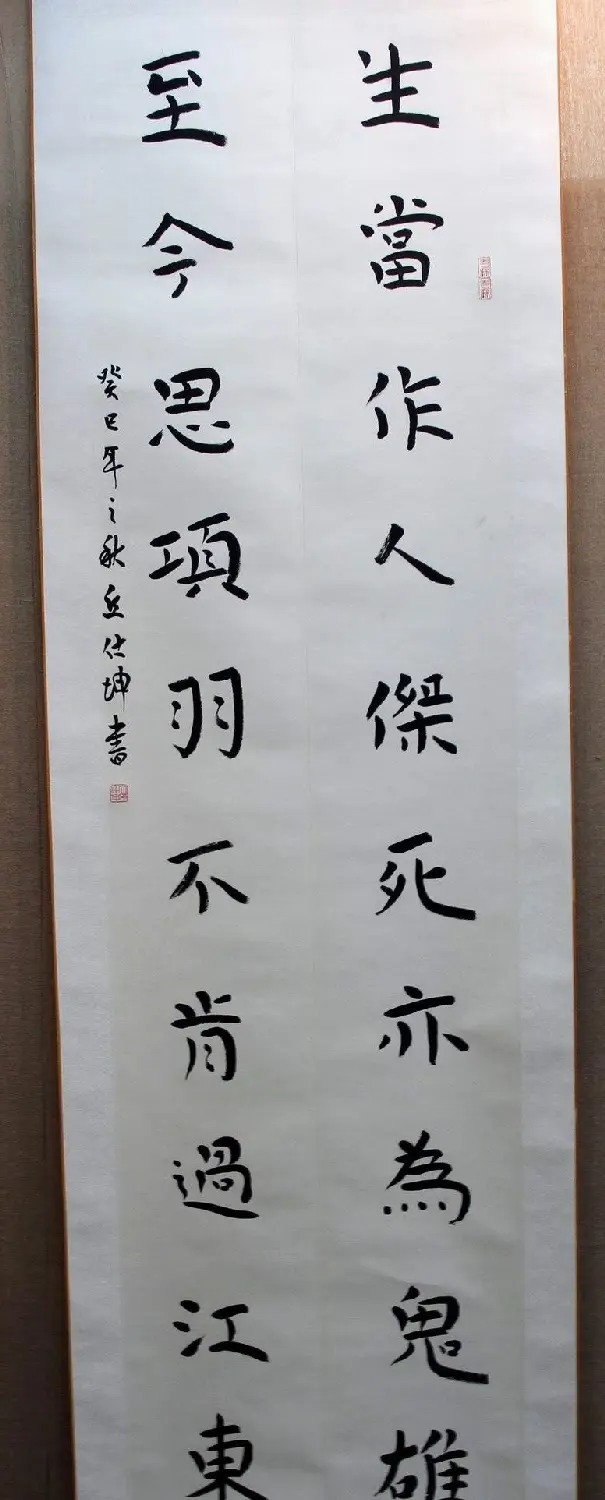 生當作人傑死亦為鬼雄
至今思項羽不肯過江東
癸巳年之秋丘仕坤書